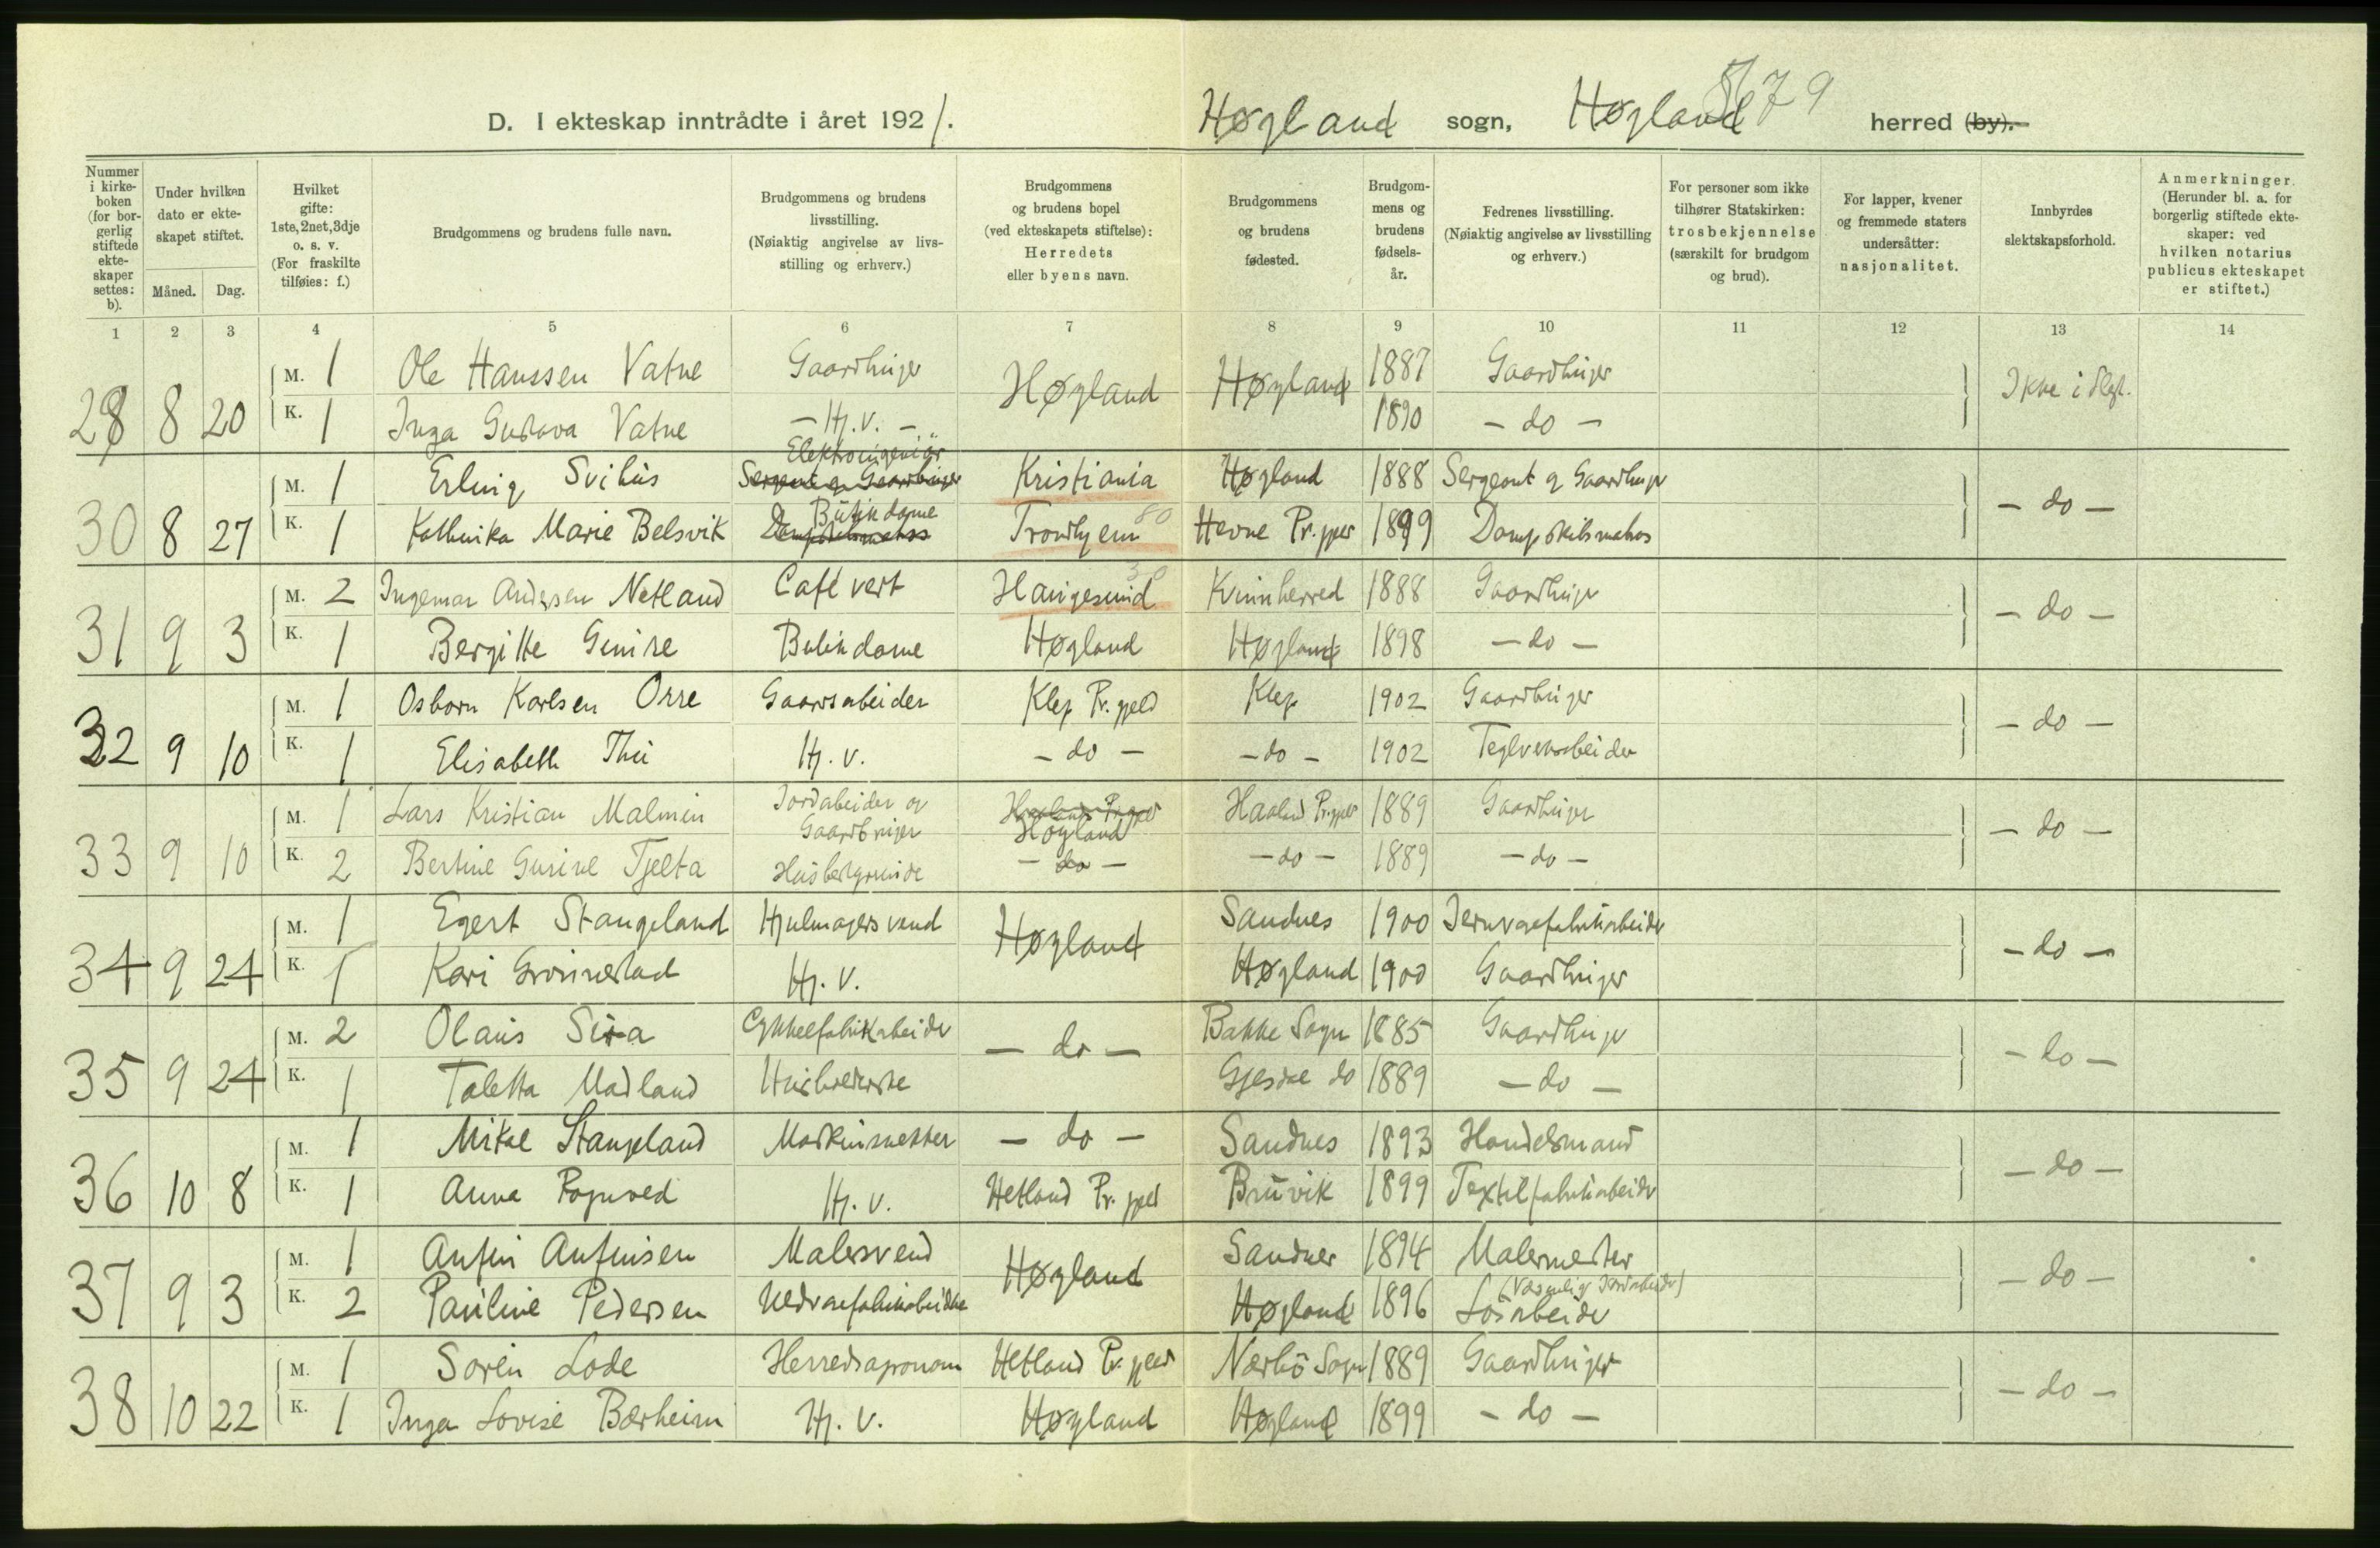 D. I ekteskap inntrådte i året 1921. Høgland sogn, Høgland 79 herred (by).
Nummer i kirke-boken (for bor-gerlig stiftede ekte-skaper settes: b).
Under hvilken dato er ekte-skapet stiftet.
Måned. Dag.
Hvilket gifte: 1ste, 2net, 3dje o. s. v. (For fraskilte tilføies: f.)
Brudgommens og brudens fulle navn.
Brudgommens og brudens livsstilling. (Nøiaktig angivelse av livs-stilling og erhverv.)
Brudgommens og brudens bopel (ved ekteskapets stiftelse): Herredets eller byens navn.
Brudgommens og brudens fødested.
Brudgom-mens og brudens fødsels-år.
Fedrenes livsstilling. (Nøiaktig angivelse av livsstilling og erhverv.)
For personer som ikke tilhører Statskirken: trosbekjennelse (særskilt for brudgom og brud).
For lapper, kvener og fremmede staters undersåtter: nasjonalitet.
Innbyrdes slektskapsforhold.
Anmerkninger. (Herunder bl. a. for borgerlig stiftede ekte-skaper: ved hvilken notarius publicus ekteskapet er stiftet.)
1 2 3 4 5 6 7 8 9 10 11 12 13 14
28 8 20 M. 1 Ole Hanssen Vatne Gaardbruger Høgland Høgland 1887 Gaardbruger Ikke i Slegt.
K. 1 Inga Gustava Vatne - Hj. v. - 1890 - do -
Elektroingeniør
30 8 27 M. 1 Erling Svihus Sergeant og Gaardbruger Kristiania Høgland 1888 Sergeant og Gaardbruger - do -
Butikdame 80
K. 1 Kathinka Marie Belsvik Dampskibsmatros Trondhjem Hevne Pr. gjeld 1899 Dampskibsmatros
30
31 9 3 M. 2 Ingemar Andersen Netland Café vert Haugesund Kvinnherred 1888 Gaardbruger - do -
K. 1 Bergitte Gunire Butikdame Høgland Høgland 1898 - do -
32 9 10 M. 1 Osborn Karlsen Orre Gaardsarbeider Klep Pr. gjeld Klep 1902 Gaardbruger - do -
K. 1 Elisabeth Thu Hj. v. - do - - do - 1902 Teglverksarbeider
33 9 10 M. 1 Lars Kristian Malmin Jordarbeider og Gaardbruger Haaland Pr. gjeld Høgland Haaland Pr. gjeld 1889 Gaardbruger - do -
K. 2 Bertine Gurine Tjelta Husbestyrerinde - do - - do - 1889 - do -
34 9 24 M. 1 Egert Stangeland Hjulmagersvend Høgland Sandnes 1900 Jernvarefabrikarbeider - do -
K. 1 Kari Grønnestad Hj. v. Høgland 1900 Gaardbruger
35 9 24 M. 2 Olaus Sira Cykkelfabrikarbeider - do - Bakke Sogn 1885 Gaardbruger - do -
K. 1 Taletta Madland Husholderske Gjesdal do 1889 - do -
36 10 8 M. 1 Mikal Stangeland Maskinsnekker - do - Sandnes 1893 Handelsmand - do -
K. 1 Anna Hj. v. Hetland Pr. gjeld Bruvik 1899 Textilfabrikarbeider
37 9 3 M. 1 Anfin Anfinsen Malersvend Høgland Sandnes 1894 Malermester - do -
(Væsentlig Jordarbeider)
K. 2 Pauline Pedersen Uldvarefabrikarbeiderske Høgland 1896 Løsarbeider
38 10 22 M. 1 Søren Lode Herredsagronom Hetland Pr. gjeld Nærbø Sogn 1889 Gaardbruger - do -
K. 1 Inga Lovise Bærheim Hj. v. Høgland Høgland 1899 - do -